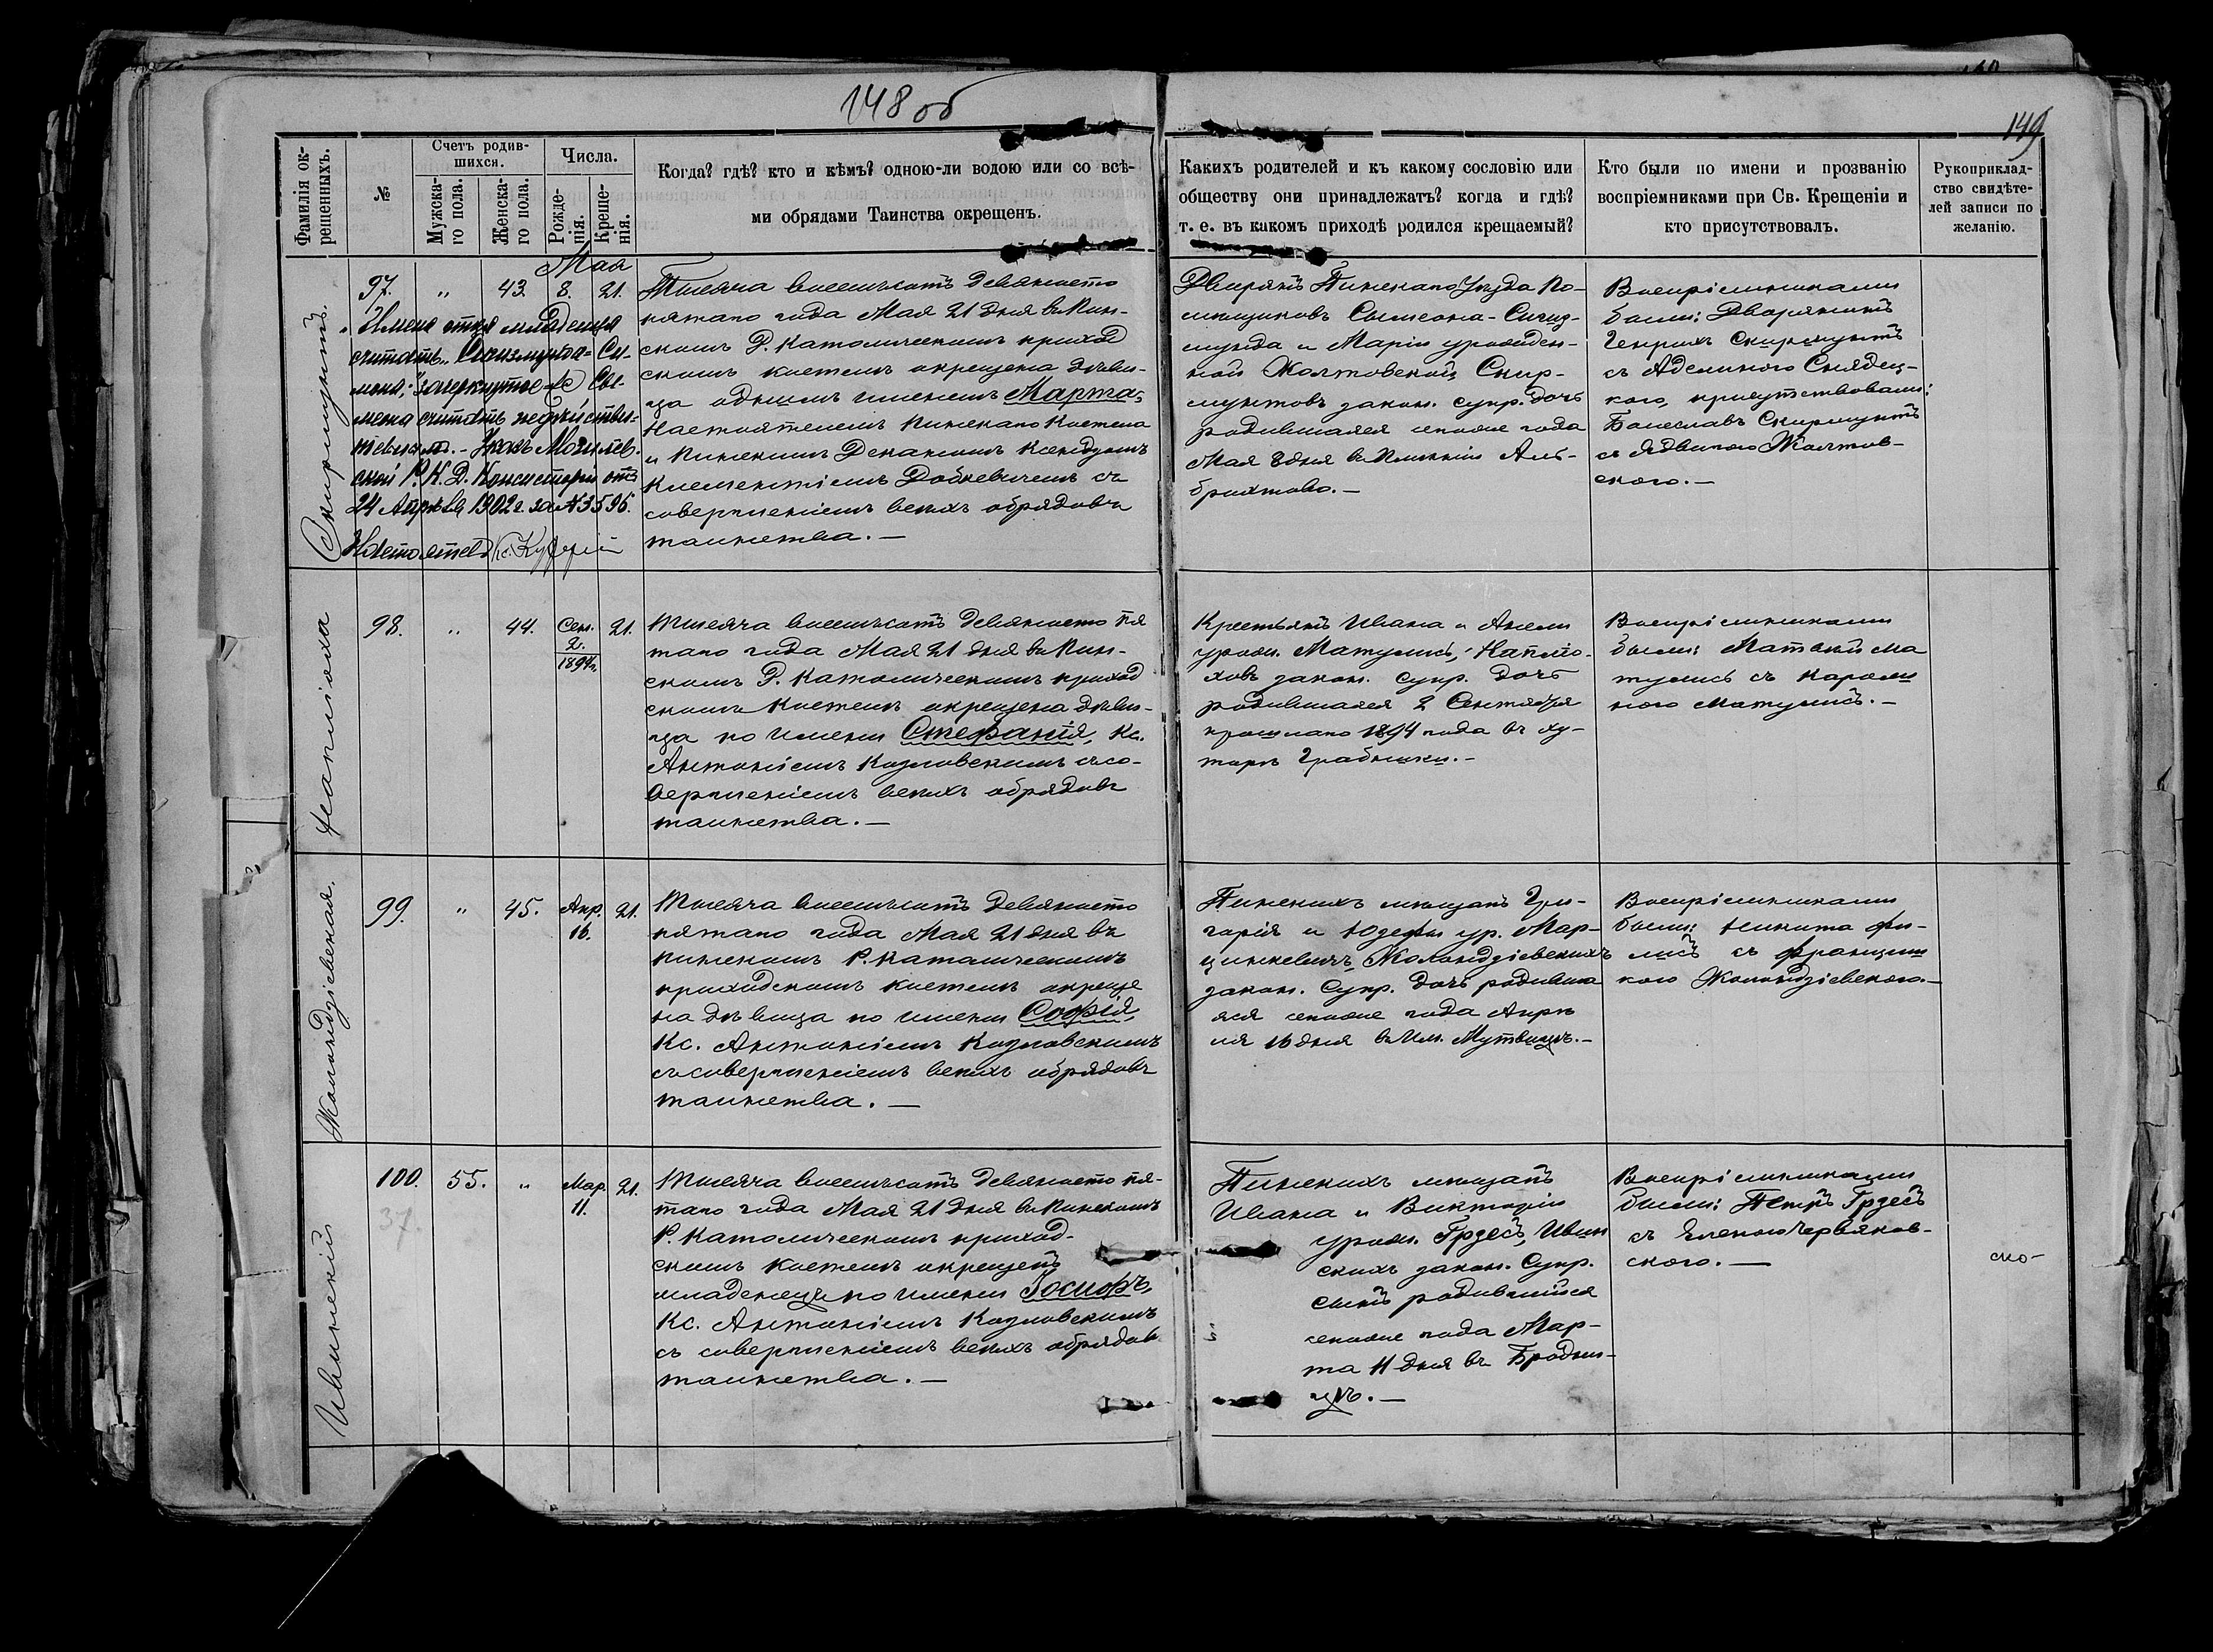 148 об
149
Фамилія ок-
рещенныхъ.
№
Счетъ родив-
шихся.
Мужска-
го пола.
Женска-
го пола.
Числа.
Рожде-
нія.
Креще-
нія.
Когда? гдѣ? кто и кѣмъ? одною-ли водою или со всѣ-
ми обрядами Таинства окрещенъ.
Какихъ родителей и къ какому сословію или
обществу они принадлежатъ? когда и гдѣ?
т. е. въ какомъ приходѣ родился крещаемый?
Кто были по имени и прозванію
воспріемниками при Св. Крещеніи и
кто присутствовалъ.
Рукоприклад-
ство свидѣте-
лей записи по
желанію.
Скирмунтъ.
97.
„
43.
Мая
8.
21.
„Имена отца младенца
считать „Сигизмунда-Си-
мона; зачеркнутое Сы-
меона считать недѣйстви-
тельнымъ. - Указъ Могилев-
ской Р. К. Д. Консисторіи отъ
24 Апрѣля 1902 г. за № 3596.
Настоятель Кс.
Тысяча восемьсотъ девяносто
пятаго года Мая 21 дня въ Пин-
скомъ Р. Католическомъ приход
скомъ костелѣ окрещена дѣви-
ца однимъ именемъ Марта,
Настоятелемъ Пинскаго Костела
и Пинскимъ Деканомъ Ксендзомъ
Климентіемъ Добкевичемъ съ
совершеніемъ всѣхъ обрядовъ
таинства. —
Дворянъ Пинскаго Уѣзда По-
мѣщиковъ Сымеона-Сигиз-
мунда и Маріи урожден-
ной Жолтовской, Скир-
мунтовъ закон. супр. дочь
родившаяся сего же года
Мая 8 дня въ имѣніи Аль-
брихтово. —
Воспріемниками
были: Дворянинъ
Генрихъ Скирмунтъ
съ Аделиною Снядец-
кого, присутствовали:
Болеславъ Скирмунтъ
съ Ядвигого Жолтов-
ского. —
98.
„
44.
Сен.
2.
1894 г.
21.
Тысяча восемьсотъ девяносто пя
таго года Мая 21 дня въ Пин-
скомъ Р. Католическомъ приход
скомъ Костелѣ окрещена дѣви-
ца по имени Стефанія, Кс.
Антоніемъ Козловскимъ съ со-
вершеніемъ всѣхъ обрядовъ
таинства. —
Крестьянъ Ивана и Анели
урожд. Матулисъ,
ховъ закон. супр. дочь
родившаяся 2 Сентября
прошлаго 1894 года въ ху-
торѣ Грабники. -
Воспріемниками
были: Матвѣй Ма
тулисъ съ Кароли
ного Матулисъ. -
Жолондзіевская.
99.
„
45.
Апр.
16.
21.
Тысяча восемьсотъ девяносто
пятаго года Мая 21 дня въ
Пинскомъ Р. Католическомъ
приходскомъ костелѣ окреще
на дѣвица по имени Софія,
Кс. Антоніемъ Козловскимъ
съ совершеніемъ всѣхъ обрядовъ
таинства. —
Пинскихъ мѣщанъ Гри-
горія и Юзефы ур. Мар-
цинкевичъ, Жолондзіевскихъ
закон. супр. дочь родивша
яся сего же года Апрѣ
ля 16 дня въ им. Мутвицѣ. -
Воспріемниками
были: Никита Фи-
липъ съ Францишкого Жолондзіевского. -
Ивинскій
100.
37.
55.
„
Мар.
11.
21.
Тысяча восемьсотъ девяносто пя-
таго года Мая 21 дня въ Пинскомъ
Р. Католическомъ приход-
скомъ костелѣ окрещенъ
младенецъ по имени Іосифъ,
Кс. Антоніемъ Козловскимъ
съ совершеніемъ всѣхъ обрядовъ
таинства. —
Пинскихъ мѣщанъ
Ивана и Викторіи
урожд. Грдесъ, Ивин
скихъ закон. супр.
сынъ родившійся
сего же года Мар-
та 11 дня въ Бродни-
цѣ. —
Воспріемниками
были: Петръ Грдесъ
съ Еленою Червяков-
ского. —
ско-